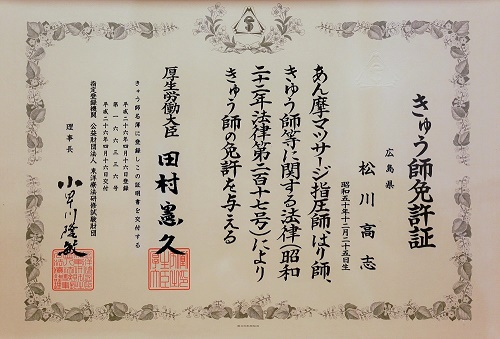 きゅう師免許証
広島県
松川高志
昭和五十年十二月二十五日生
あん摩マツサージ指圧師、はり師、
きゆう師等に関する法律(昭和
二十二年法律第二百十七号)により
きゅう師の免許を与える
厚生労働大臣 田村憲久
きゅう師名簿に登録しこの証明書を交付する
平成二十六年四月十六日登録
第一六六三六号
平成二十六年四月十六日交付
指定登録機関 公益財団法人 東洋療法研修試験財団
理事長 小早川隆敏